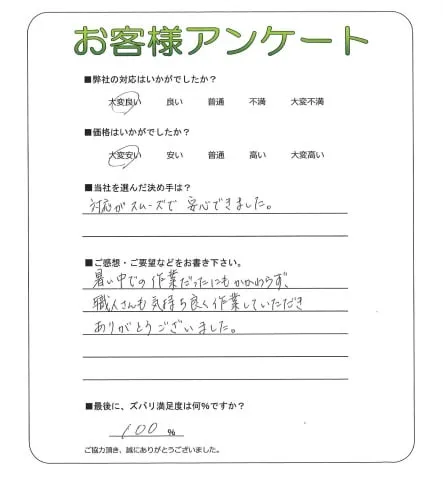 お客様アンケート
■弊社の対応はいかがでしたか?
大変良い 良い 普通 不満 大変不満
■価格はいかがでしたか?
大変安い 安い 普通 高い 大変高い
■当社を選んだ決め手は?
対応がスムーズで 安心できました。
■ご感想・ご要望などをお書き下さい。
暑い中での作業だったにもかかわらず、
職人さんも気持ち良く作業していただき
ありがとうございました。
■最後に、ズバリ満足度は何%ですか?
100 %
ご協力頂き、誠にありがとうございました。